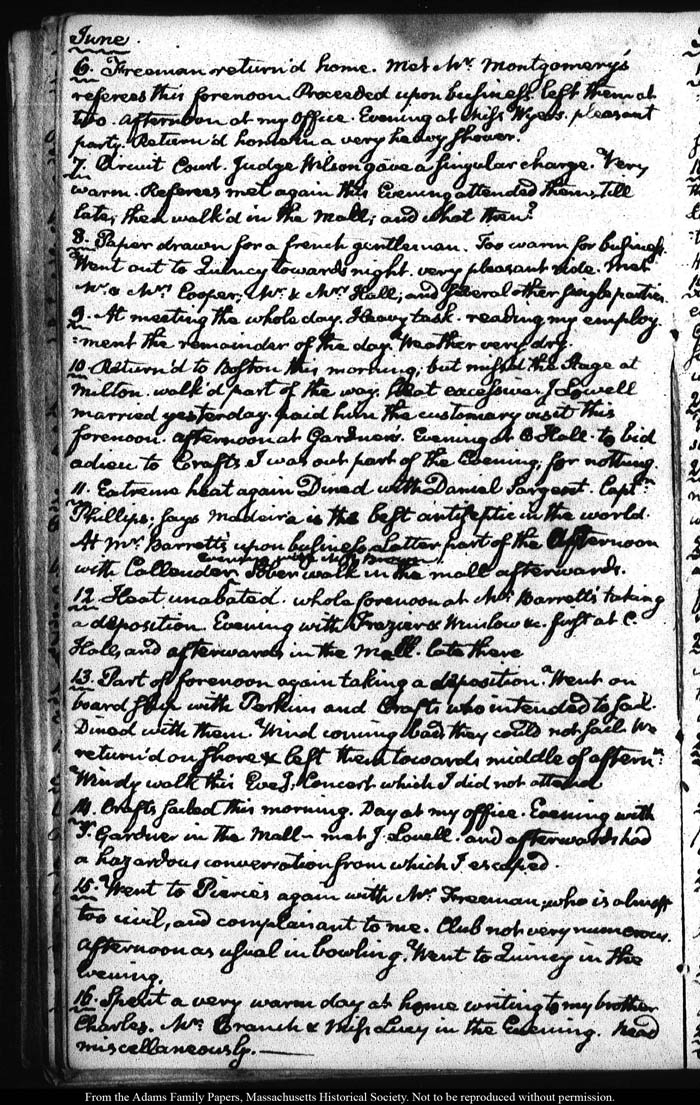 June.
6. Freeman return'd home. Met Mr. Montgomery's
referees this forenoon. Proceeded upon business left them at
two. afternoon at my Office. Evening at Miss Wyer's. pleasant
party. Return'd home in a very heavy shower.
7. Circuit Court. Judge Wilson gave a singular charge. Very
warm. Referees met again this Evening attended them till
late; then walk'd in the Mall; and what then?
8. Paper drawn for a french gentleman. Too warm for business.
Went out to Quincy towards night. very pleasant ride. Met
Mr. & Mrs. Cooper, Mr. & Mrs. Hall; and several other single parties.
9. At meeting the whole day. Heavy task. reading my employ
:ment the remainder of the day. Weather very dry.
10. Return'd to Boston this morning, but miss'd the Stage at
Milton. walk'd part of the way. heat excessive. J Lowell
married yesterday. paid him the customary visit this
forenoon. afternoon at Gardner's. Evening at B Hall. to bid
adieu to Crafts. I was out part of the Evening, for nothing.
11. Extreme heat again Dined with Daniel Sargent. Captn.
Phillips. says Madeira is the best antiseptic in the world.
At Mr. Barrett's upon business. latter part of the Afternoon
Evening with Miss
with Callender. Sober walk in the mall afterwards.
12. Heat unabated. whole forenoon at Mr. Barrett's taking
a deposition. Evening with Frazier & Winslow &c. first at C.
Hall, and afterwards in the Mall. late there
13. Part of forenoon again taking a deposition. Went on
board ship with Perkins and Crafts who intended to sail.
Dined with them. Wind coming bad, they could not sail. We
return'd on shore & left them towards middle of aftern:n
Windy walk this Eveg. Concert which I did not attend
14. Crafts sailed this morning. Day at my office. Evening with
J. Gardner in the Mall - met J. Lovell. and afterwards had
a hazardous conversation from which I escaped.
15. Went to Pierce's again with Mr. Freeman, who is almost
too civil, and complaisant to me. Club not very numerous.
afternoon as usual in bowling. Went to Quincy in the
Evening.
16. Spent a very warm day at home writing to my brother
Charles. Mr. Cranch & Miss Lucy in the Evening. Read
miscellaneously.
From the Adams Family Papers, Massachusetts Historical Society. Not to be reproduced without permission.